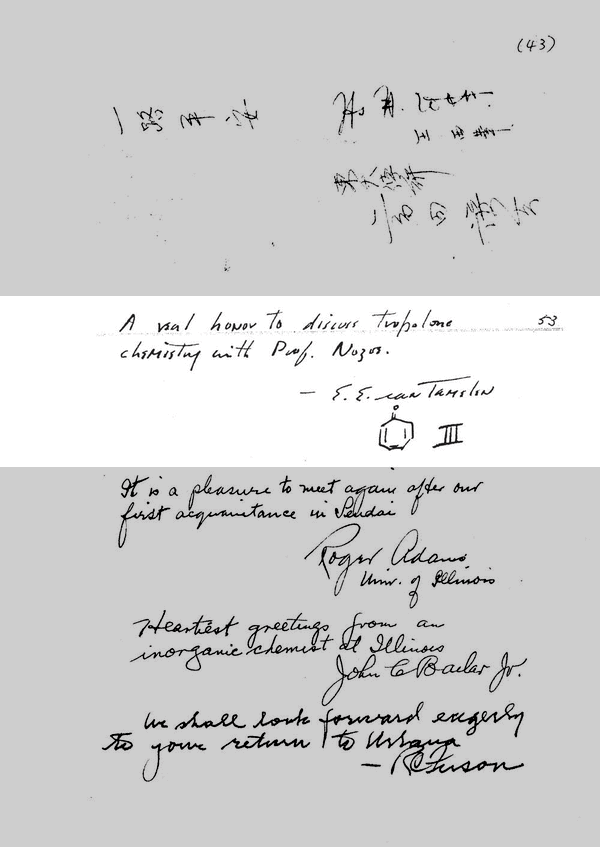 (43)
一路平安
A real honor to discuss tropolone
53
chemistry with Prof. Nozoe.
— E. E. van Tamelen
O
III
It is a pleasure to meet again after our
first acquaintance in Sendai
Roger Adams
Univ. of Illinois
Heartiest greetings from an
inorganic chemist at Illinois
John C Bailar Jr.
We shall look forward eagerly
to your return to Urbana
— RC Fuson